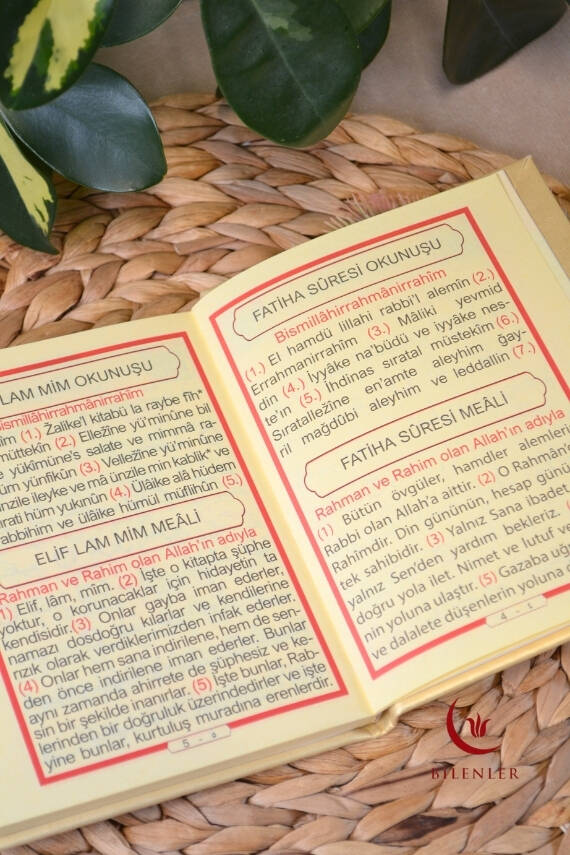 LAM MİM OKUNUŞU
Bismillâhirrahmânirrahîm
(1.) Żalike'l kitabü la raybe fîh*
müttekîn (2.) Ellezîne yü'minûne bil
yükîmûne's salate ve mimmâ ra-
üm yünfikûn (3.) Vellezîne yü'minûne
ünzile ileyke ve mâ ünzile min kablik* ve
hirati hüm yukınûn (4.) Ülâike alâ hüdem
rabbihim ve ülâike hümül müflihûn (5.)
ELİF LAM MİM MEÂLİ
Rahman ve Rahim olan Allah'ın adıyla
(1) Elif, lâm, mîm. (2) İşte o kitapta şüphe
yoktur, o korunacaklar için hidayetin ta
kendisidir.(3) Onlar gayba iman ederler,
namazı dosdoğru kılarlar ve kendilerine
rızık olarak verdiklerimizden infak ederler.
(4) Onlar hem sana indirilene, hem de sen-
den önce indirilene iman ederler. Bunlar
aynı zamanda ahirete de şüphesiz ve ke-
sin bir şekilde inanırlar. (5) İşte bunlar, Rab-
lerinden bir doğruluk üzerindedirler ve işte
yine bunlar, kurtuluş muradına erenlerdir.
5 - ٥
FATİHA SÛRESİ OKUNUŞU
Bismillâhirrahmânirrahîm
(1.) El hamdü lillahi rabbi'l alemîn (2.)
Errahmanirrahîm (3.) Mâliki yevmid
dîn (4.) İyyâke na'büdü ve iyyâke nes-
te'în (5.) İhdinas sıratal müstekîm (6.)
Sıratallezîne en'amte aleyhim ğay-
ril mağdûbi aleyhim ve leddallîn (7.)
FATİHA SÛRESİ MEÂLİ
Rahman ve Rahim olan Allah'ın adıyla
(1) Bütün övgüler, hamdler alemleri
Rabbi olan Allah'a aittir. (2) O Rahmân
Rahîmdir. Din gününün, hesap günü
tek sahibidir. (3) Yalnız Sana ibadet
yalnız Sen'den yardım bekleriz.
doğru yola ilet. Nimet ve lutuf ve
nin yoluna ulaştır. (5) Gazaba uğ
ve dalalete düşenlerin yoluna d
4 - ٤
BİLENLER